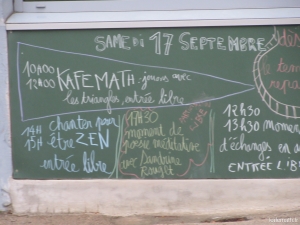 SAMEDI 17 SEPTEMBRE
10H00
12H00
KAFEMATH : jouons avec
les triangles entrée libre
chanter pour
14H
15H être ZEN
entrée libre
17H30
moment de
poésie méditative
avec Sandrine
12H30
13H30 momen
d'échanges en a
ENTRÉE LIB
le tem
repa